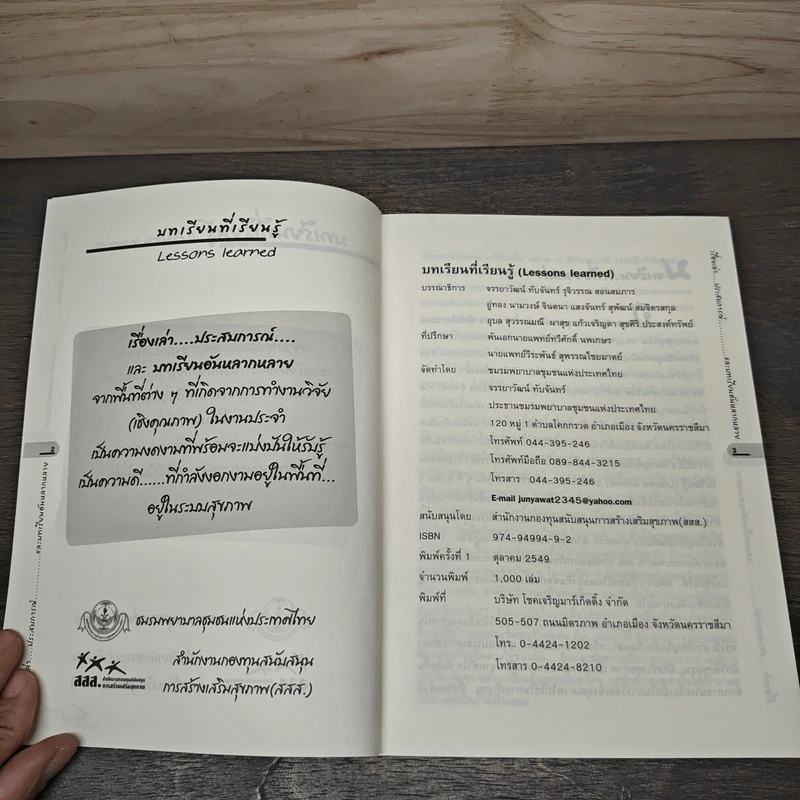 บทเรียนที่เรียนรู้
Lessons learned
เรื่องเล่า....ประสบการณ์....
และ บทเรียนอันหลากหลาย
จากพื้นที่ต่าง ๆ ที่เกิดจากการทำงานวิจัย
(เชิงคุณภาพ) ในงานประจำ
เป็นความงดงามที่พร้อมจะแบ่งปันให้รับรู้
เป็นความดี......ที่กำลังงอกงามอยู่ในพื้นที่...
อยู่ในระบบสุขภาพ
2
ชมรมพยาบาลชุมชนแห่งประเทศไทย
สำนักงานกองทุนสนับสนุน
การสร้างเสริมสุขภาพ(สสส.)
สสส.
สำนักงานกองทุนสนับสนุน
การสร้างเสริมสุขภาพ
บทเรียนที่เรียนรู้ (Lessons learned)
บรรณาธิการ จรรยาวัฒน์ ทับจันทร์ รุจิวรรณ สอนสมภาร
อู่ทอง นามวงษ์ จินตนา แสงจันทร์ สุพัฒน์ สมจิตรสกุล
อุบล สุวรรณมณี ผาสุข แก้วเจริญตา สุขศิริ ประสงค์ทรัพย์
ที่ปรึกษา พันเอกนายแพทย์ทวีศักดิ์ นพเกษร
นายแพทย์วีระพันธ์ สุพรรณไชยมาตย์
จัดทำโดย ชมรมพยาบาลชุมชนแห่งประเทศไทย
จรรยาวัฒน์ ทับจันทร์
ประธานชมรมพยาบาลชุมชนแห่งประเทศไทย
120 หมู่ 1 ตำบลโคกกรวด อำเภอเมือง จังหวัดนครราชสีมา
โทรศัพท์ 044-395-246
โทรศัพท์มือถือ 089-844-3215
โทรสาร 044-395-246
E-mail junyawat2345@yahoo.com
สนับสนุนโดย สำนักงานกองทุนสนับสนุนการสร้างเสริมสุขภาพ(สสส.)
ISBN 974-94994-9-2
พิมพ์ครั้งที่ 1 ตุลาคม 2549
จำนวนพิมพ์ 1,000 เล่ม
พิมพ์ที่ บริษัท โชคเจริญมาร์เก็ตติ้ง จำกัด
505-507 ถนนมิตรภาพ อำเภอเมือง จังหวัดนครราชสีมา
โทร.. 0-4424-1202
โทรสาร 0-4424-8210
3